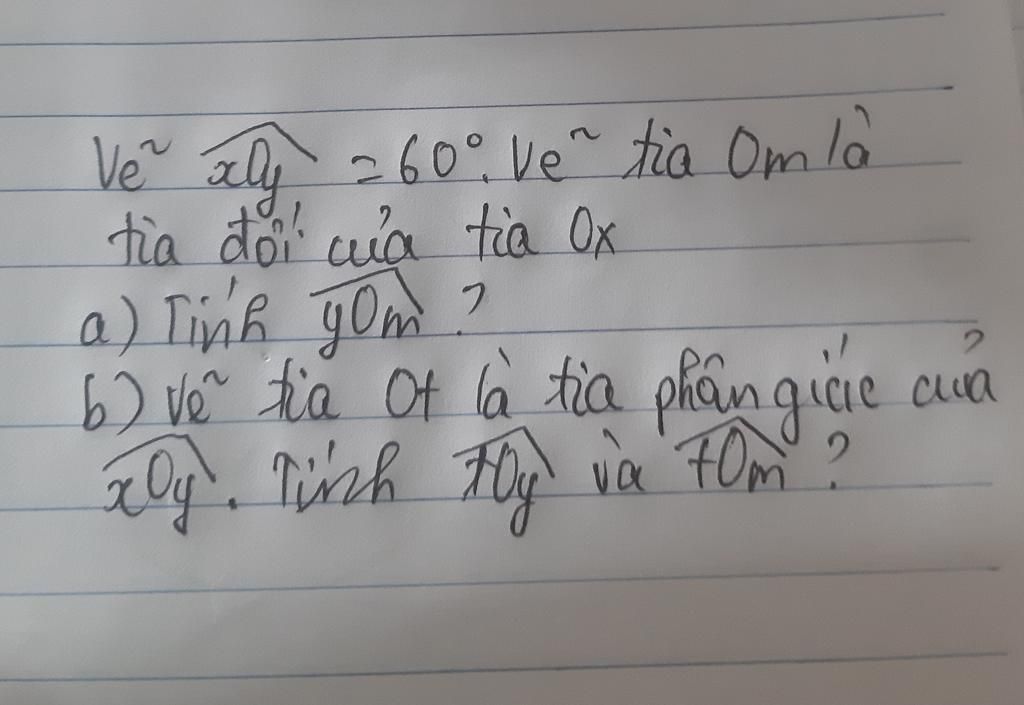 Vẽ xOy = 60°. Vẽ tia Om là
tia đối của tia Ox
a) Tính yOm ?
b) Vẽ tia Ot là tia phân giác của
xOy. Tính tOy và tOm ?